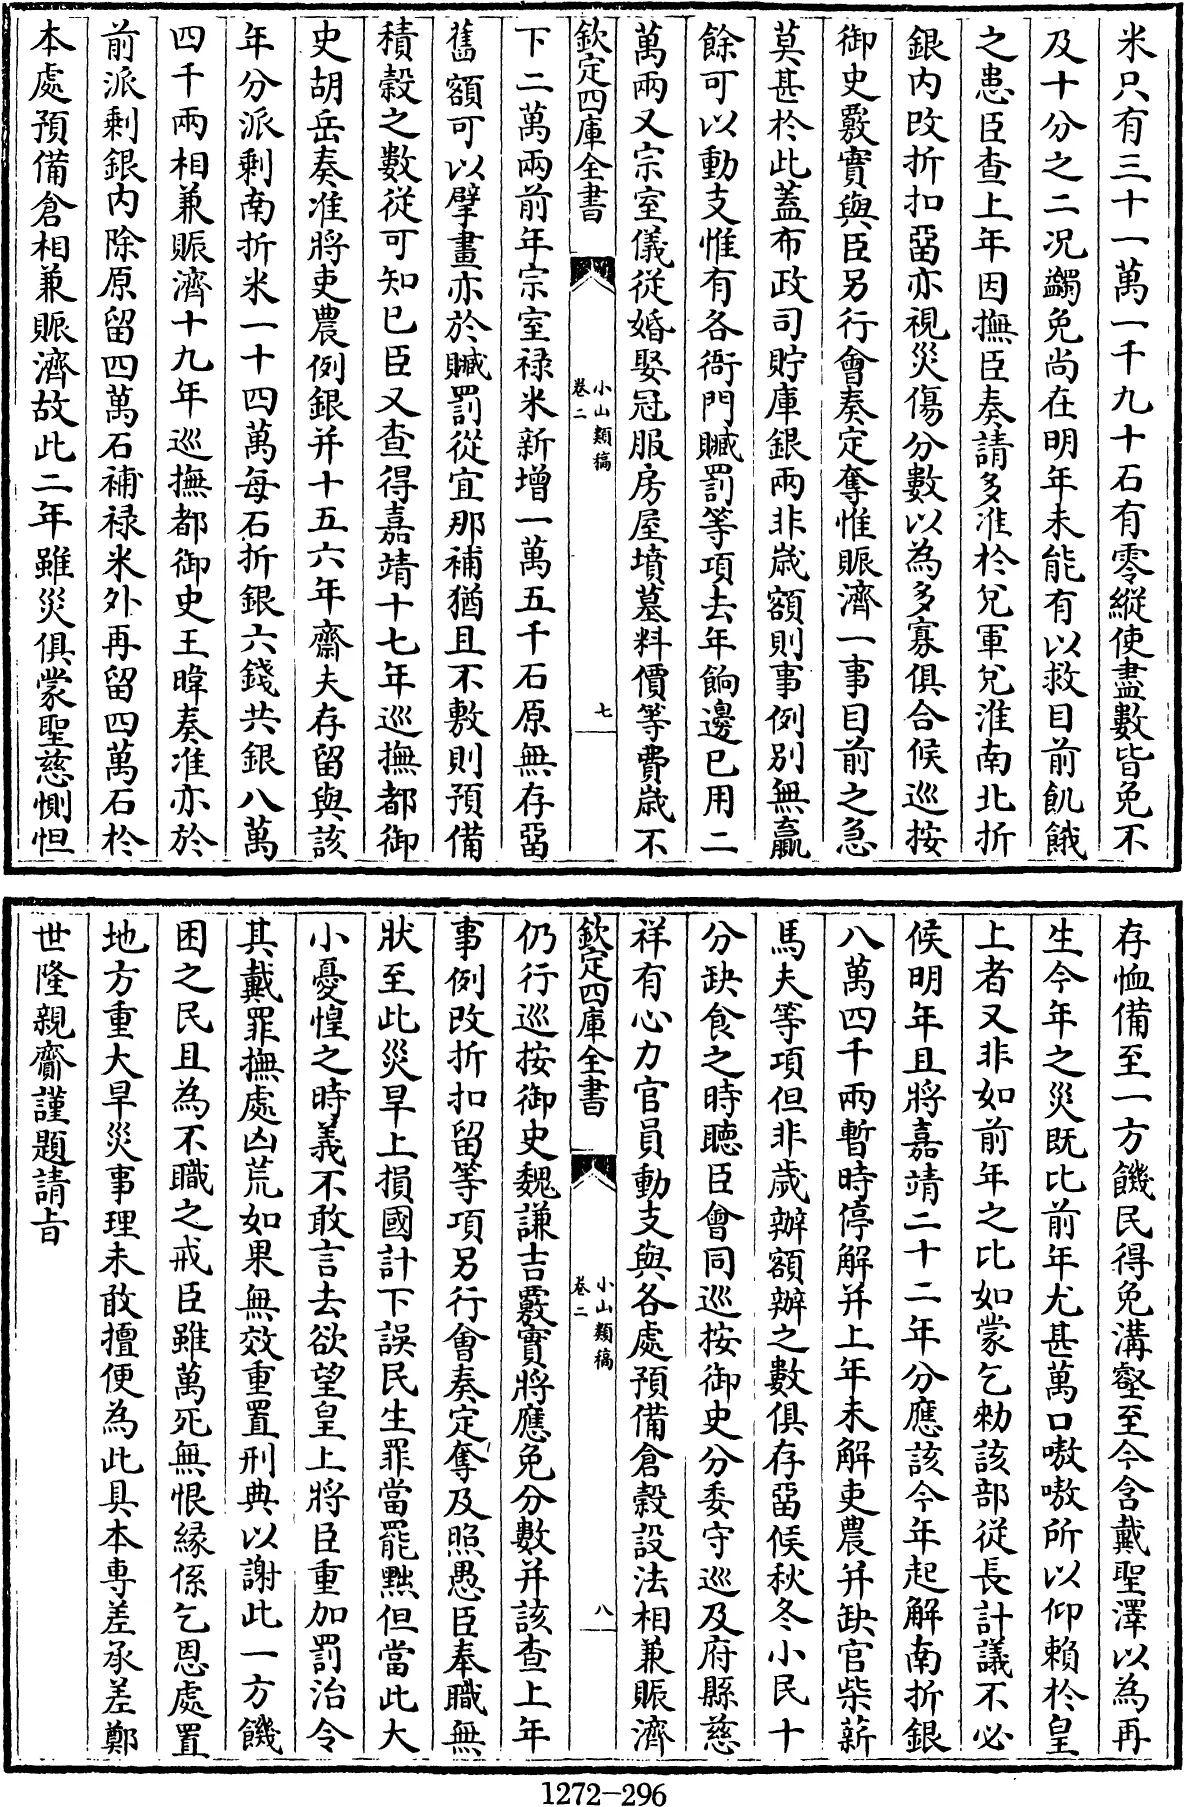 米只有三十一萬一千九十石有零縱使盡數皆免不
及十分之二况蠲免尚在明年未能有以救目前飢餓
之患臣查上年因撫臣奏請多准於兊軍兊淮南北折
銀内改折扣畱亦視災傷分數以為多寡俱合候巡按
御史覈實與臣另行會奏定奪惟賑濟一事目前之急
莫甚於此蓋布政司貯庫銀兩非歳額則事例別無贏
餘可以動支惟有各衙門贓罰等項去年餉邊已用二
萬兩又宗室儀從婚娶冠服房屋墳墓料價等費歳不
欽定四庫全書
小山類稿
卷二
七
下二萬兩前年宗室禄米新增一萬五千石原無存畱
舊額可以擘畫亦於贓罰從宜那補猶且不敷則預備
積穀之數從可知已臣又查得嘉靖十七年巡撫都御
史胡岳奏准將吏農例銀并十五六年齋夫存留與該
年分派剩南折米一十四萬每石折銀六錢共銀八萬
四千兩相兼賑濟十九年巡撫都御史王暐奏准亦於
前派剩銀内除原留四萬石補禄米外再留四萬石於
本處預備倉相兼賑濟故此二年雖災俱蒙聖慈惻怛
存恤備至一方饑民得免溝壑至今含戴聖澤以為再
生今年之災既比前年尤甚萬口嗷嗷所以仰賴於皇
上者又非如前年之比如蒙乞勑該部從長計議不必
候明年且將嘉靖二十二年分應該今年起解南折銀
八萬四千兩暫時停解并上年未解吏農并缺官柴薪
馬夫等項但非歲辦額辦之數俱存畱候秋冬小民十
分缺食之時聽臣會同巡按御史分委守巡及府縣慈
祥有心力官員動支與各處預備倉穀設法相兼賑濟
欽定四庫全書
小山類稿
卷二
八
仍行巡按御史魏謙吉覈實將應免分數并該查上年
事例改折扣留等項另行會奏定奪及照愚臣奉職無
狀至此災旱上損國計下誤民生罪當罷黜但當此大
小憂惶之時義不敢言去欲望皇上將臣重加罰治令
其戴罪撫處凶荒如果無效重置刑典以謝此一方饑
困之民且為不職之戒臣雖萬死無恨縁係乞恩處置
地方重大旱災事理未敢擅便為此具本專差承差鄭
世隆親齎謹題請㫖
1272-296